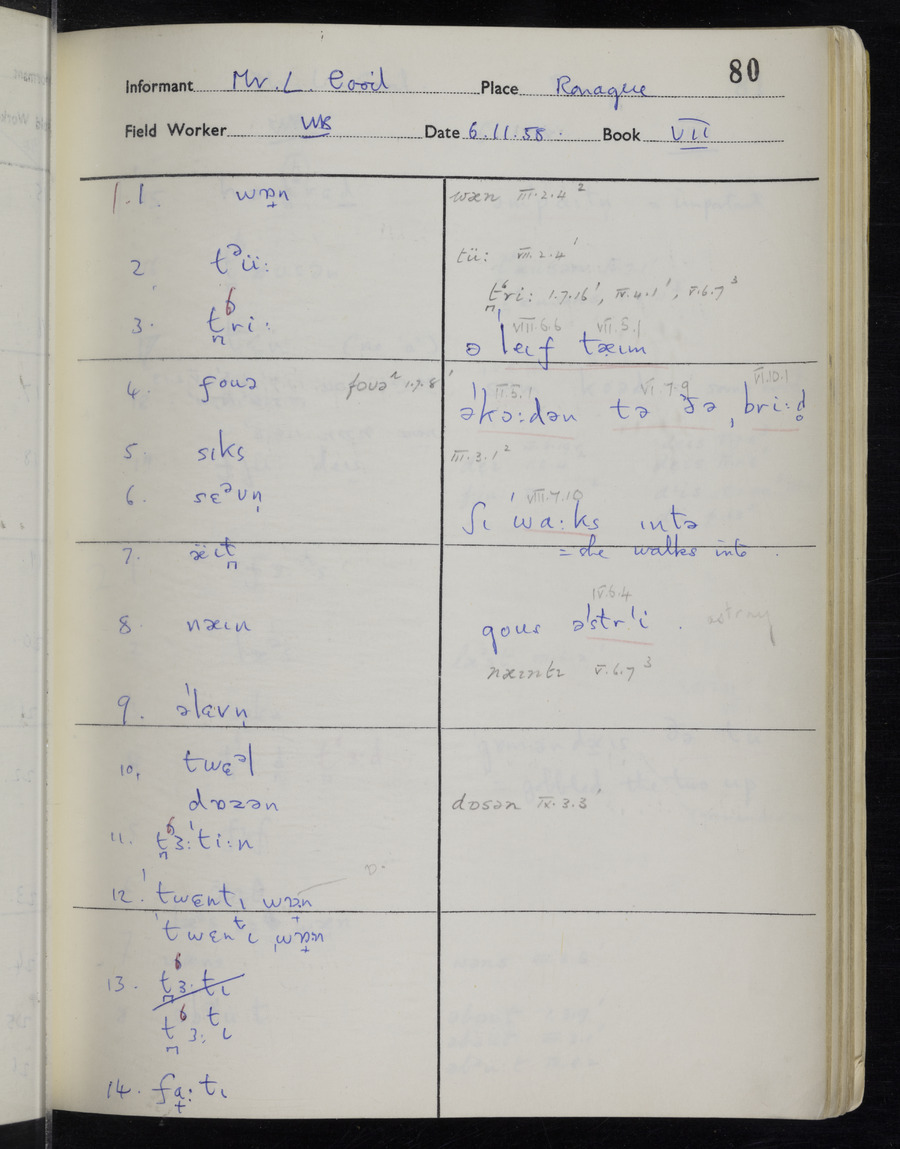 80
Informant Mr. L. Cooil Place Ronague
Field Worker WB Date 6.11.58. Book VII
1.1. wɒ̟n
wæn III.2.4²
2 tᵊüː
tüː VII.2.4¹
3. t̪ᶿriː
t̪ᶿriː 1.7.16¹, IV.4.1¹, V.6.7³
VIII.6.6 VII.5.1
ə ˈleɩf tæɩm
4. fouə fouəʴ 1.7.8¹
II.5.1 VI.7.9 VI.10.1
əˈkɔːdən tə ðə ˌbriːd̥
5 sɩks
III.3.1²
6. sɛᵊvn̩
VIII.7.10
ʃɩ ˈwaːks ɩntə
= she walks into.
7. æ̈ɩt̪
8. næɩn
IV.6.4
gous əˈstrˈi. astray
næɩntɩ V.6.7³
9. əˈlɛvn̩
10. twɛᵊl
dɒzən
dɒsən IX.3.3¹
11. t̪ᶿɜːˈtiːn
12. ˈtwɛntɩ wɒ̟n
ˈtwɛnᵗɩ ˌwɒ̟n
13. t̪ᶿɜːtɩ
t̪ᶿɜːᵗɩ
14. fa̟ːtɩ